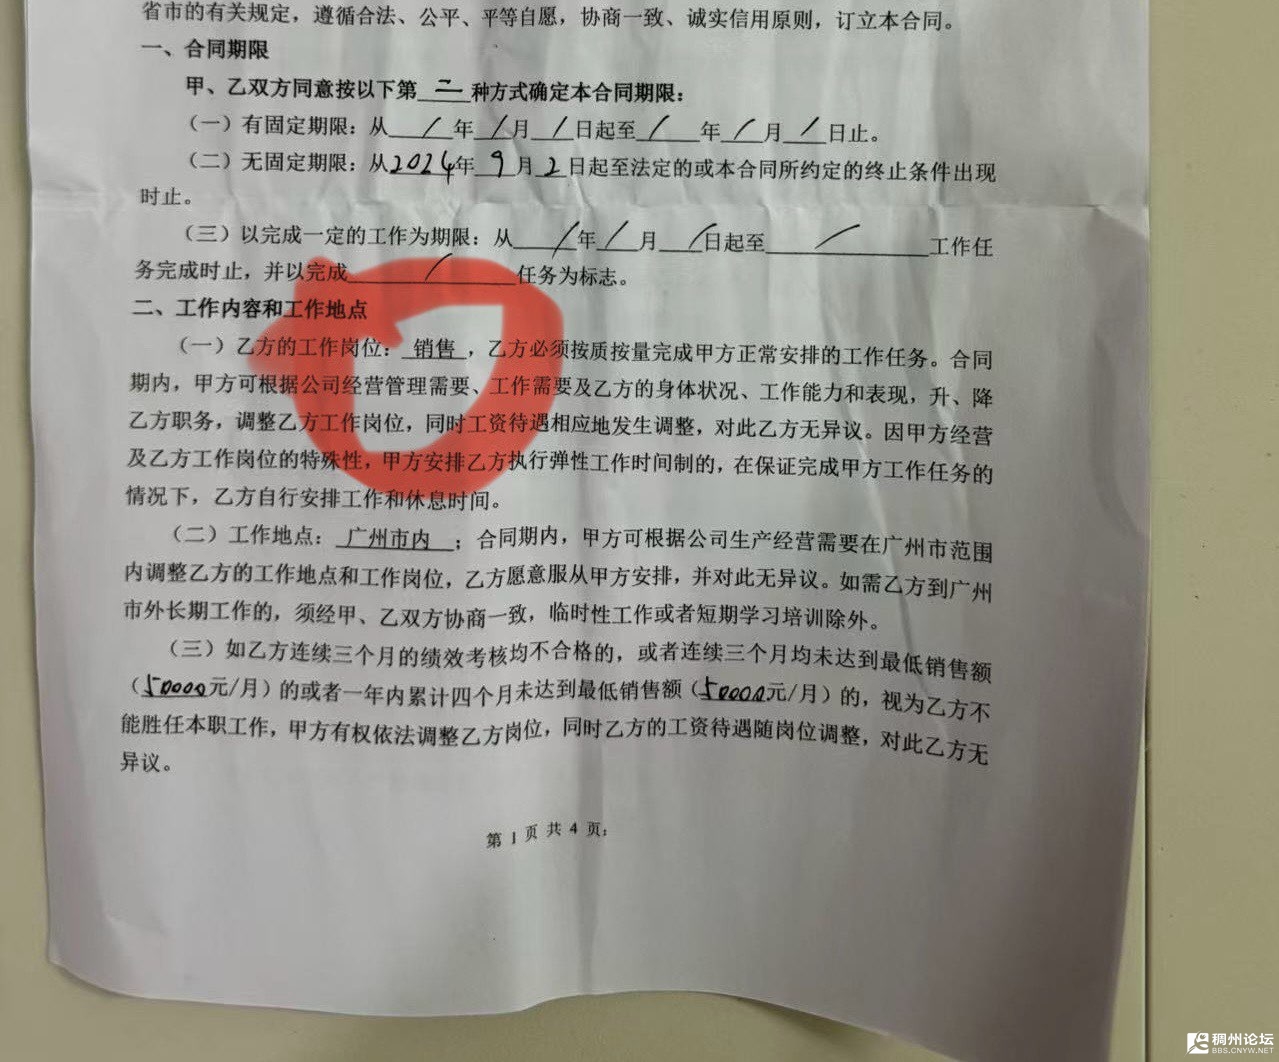 省市的有关规定，遵循合法、公平、平等自愿，协商一致、诚实信用原则，订立本合同。
一、合同期限
甲、乙双方同意按以下第二种方式确定本合同期限：
（一）有固定期限：从/年/月/日起至/年/月/日止。
（二）无固定期限：从2024年9月2日起至法定的或本合同所约定的终止条件出现
时止。
（三）以完成一定的工作为期限：从/年/月/日起至/工作任
务完成时止，并以完成/任务为标志。
二、工作内容和工作地点
（一）乙方的工作岗位：销售，乙方必须按质按量完成甲方正常安排的工作任务。合同
期内，甲方可根据公司经营管理需要、工作需要及乙方的身体状况、工作能力和表现，升、降
乙方职务，调整乙方工作岗位，同时工资待遇相应地发生调整，对此乙方无异议。因甲方经营
及乙方工作岗位的特殊性，甲方安排乙方执行弹性工作时间制的，在保证完成甲方工作任务的
情况下，乙方自行安排工作和休息时间。
（二）工作地点：广州市内；合同期内，甲方可根据公司生产经营需要在广州市范围
内调整乙方的工作地点和工作岗位，乙方愿意服从甲方安排，并对此无异议。如需乙方到广州
市外长期工作的，须经甲、乙双方协商一致，临时性工作或者短期学习培训除外。
（三）如乙方连续三个月的绩效考核均不合格的，或者连续三个月均未达到最低销售额
（50000元/月）的或者一年内累计四个月未达到最低销售额（50000元/月）的，视为乙方不
能胜任本职工作，甲方有权依法调整乙方岗位，同时乙方的工资待遇随岗位调整，对此乙方无
异议。
第 1 页 共 4 页；
稠州论坛
BBS.CNYW.NET